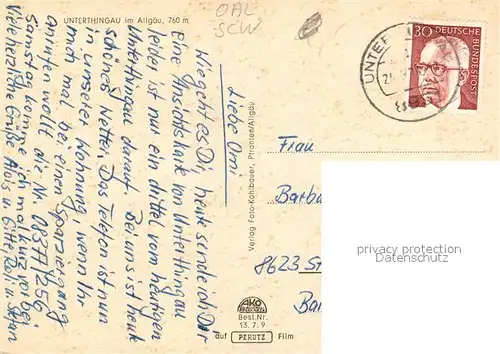 UNTERTHINGAU im Allgäu, 760 m
OAL
SCW
Liebe Omi
Wie geht es Dir, heute sende ich Dir
eine Ansichtskarte von Unterthingau
leider ist nur ein drittel vom heutigen
Unterthingau darauf. Bei uns ist heute
schönes Wetter. Das Telefon ist nun
in unserer Wohnung, wenn Ihr
mich mal bei einem Spaziergang
anrufen wollt die Nr. 08377/256
Samstag komme ich mal kurz vorbei
viele herzliche Grüße Alois u. Gitte,
Verlag Foto-Kohlbauer, Pfronten/Allgäu
30
DEUTSCHE
BUNDESPOST
UNTER
Frau
Barb
8623 St
Ba
AKO
Best.Nr.
13. 7. 9
auf PERUTZ Film
privacy protection
Datenschutz